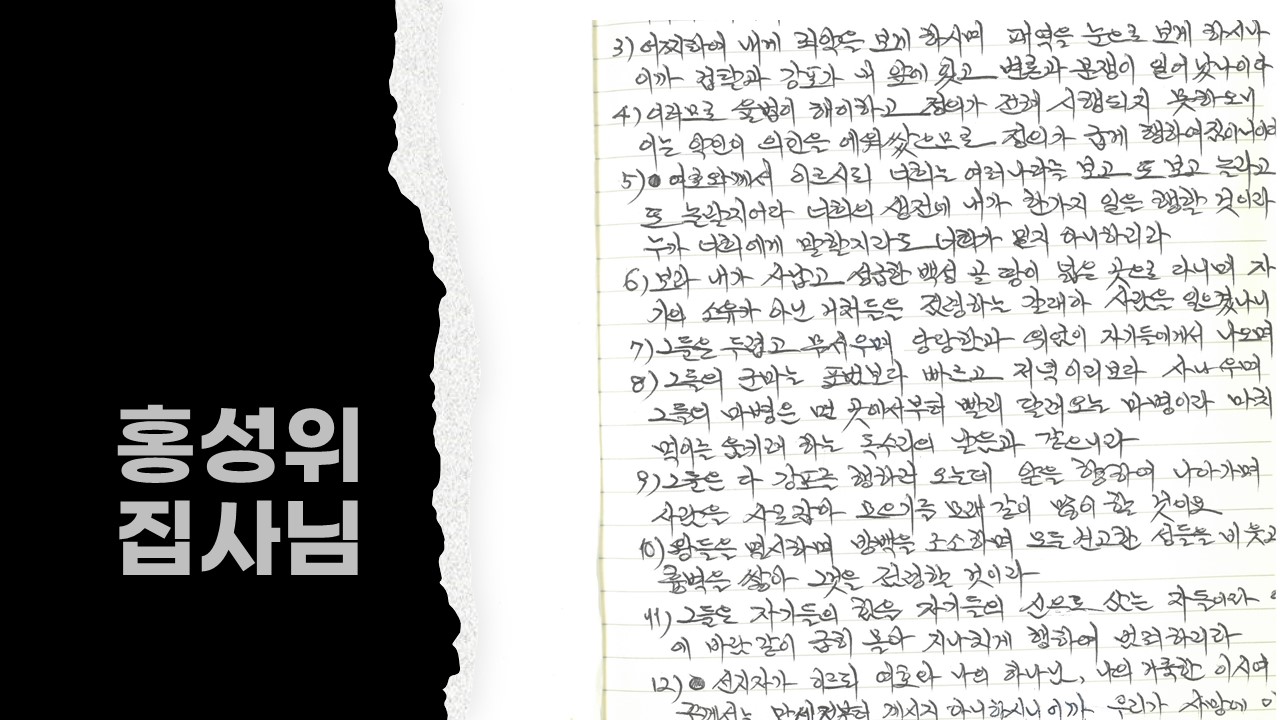 홍성위
집사님
3) 어찌하여 내게 죄악을 보게 하시며 패역을 눈으로 보게 하시나
이까 겁탈과 강포가 내 앞에 있고 변론과 분쟁이 일어났나이다
4) 이러므로 율법이 해이하고 정의가 전혀 시행되지 못하오니
이는 악인이 의인을 에워쌌으므로 정의가 굽게 행하여짐이니이다
5) 여호와께서 이르시되 너희는 여러나라를 보고 또 보고 놀라고
또 놀랄지어다 너희의 생전에 내가 한가지 일을 행할 것이라
누가 너희에게 말할지라도 너희가 믿지 아니하리라
6) 보라 내가 사납고 성급한 백성 곧 땅이 넓은 곳으로 다니며 자
기의 소유가 아닌 거처들을 점령하는 갈대아 사람을 일으켰나니
7) 그들은 두렵고 무서우며 당당함과 위엄이 자기들에게서 나오며
8) 그들의 군마는 표범보다 빠르고 저녁 이리보다 사나우며
그들의 마병은 먼 곳에서부터 빨리 달려오는 마병이라 마치
먹이를 움키려 하는 독수리의 날음과 같으니라
9) 그들은 다 강포를 행하러 오는데 앞을 향하여 나아가며
사람을 사로잡아 모으기를 모래 같이 많이 할 것이요
10) 왕들을 멸시하며 방백을 조소하며 모든 견고한 성들을 비웃고
흉벽을 쌓아 그것을 점령할 것이라
11) 그들은 자기들의 힘을 자기들의 신으로 삼는 자들이라
이 바람 같이 급히 몰아 지나치게 행하여 범죄하리라
12) 선지자가 이르되 여호와 나의 하나님, 나의 거룩한 이시여
주께서는 만세전부터 계시지 아니하시니이까 우리가 사망에 이